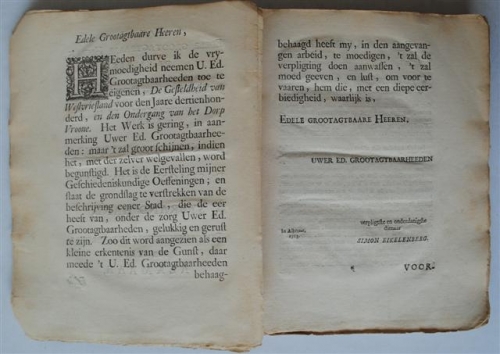 Edele Grootagtbaare Heeren,
HEeden durve ik de vry-
moedigheid neemen U. Ed.
Grootagtbaarheeden toe te
eigenen, De Gesteldheid van
Westvriesland voor den Jaare dertienhon-
derd, en den Ondergang van het Dorp
Vroone. Het Werk is gering, in aan-
merking Uwer Ed. Grootagtbaarhee-
den: maar 't zal groot schijnen, indien
het, met der zelver welgevallen, word
begunstigd. Het is de Eersteling mijner
Geschiedeniskundige Oeffeningen; en
staat de grondslag te verstrekken van de
beschrijving eener Stad, die de eer
heeft van, onder de zorg Uwer Ed.
Grootagtbaarheden, gelukkig en gerust
te zijn. Zoo dit word aangezien als een
kleine erkentenis van de Gunst, daar
meede 't U. Ed. Grootagtbaarheeden
behaag-
behaagd heeft my, in den aangevan-
gen arbeid, te moedigen, 't zal de
verpligting doen aanwassen, 't zal
moed geeven, en lust, om voor te
vaaren, hem die, met een diepe eer-
biedigheid, waarlijk is,
EDELE GROOTAGTBAARE HEEREN,
UWER ED. GROOTAGTBAARHEEDEN
verpligtste en onderdanigste
dienaar
SIMON EIKELENBERG.
VOOR.